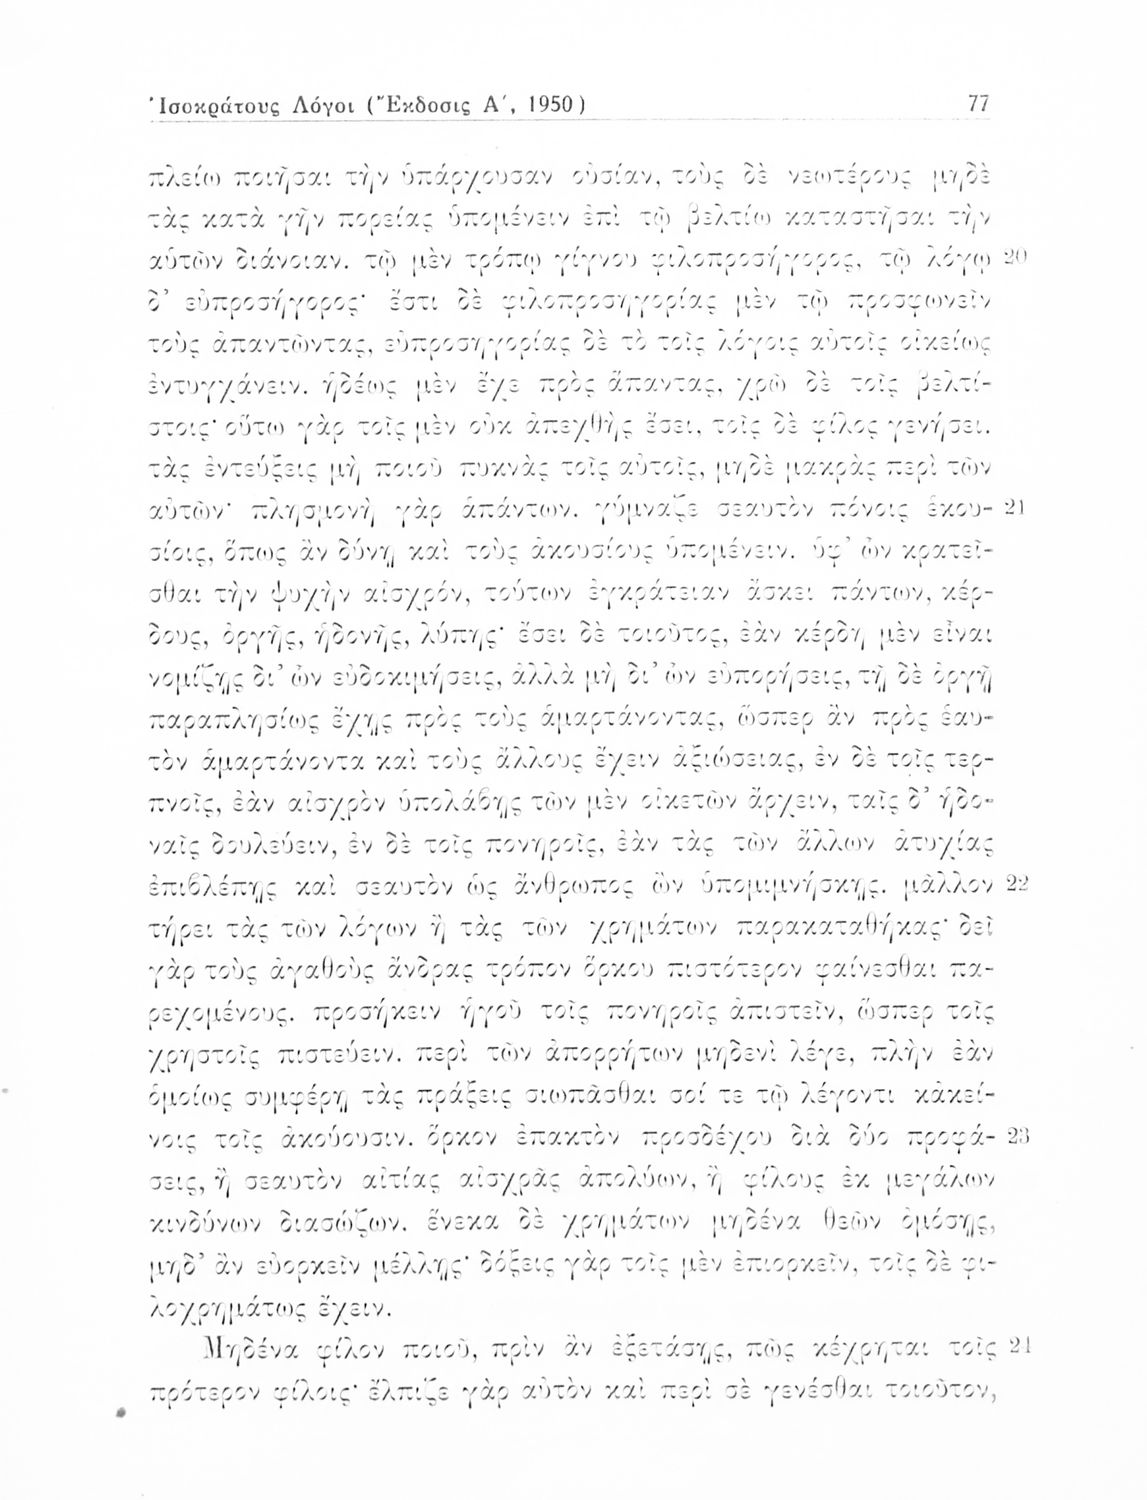 Ἰσοκράτους Λόγοι (Ἔκδοσις Α΄, 1950) 77
πλείω ποιῆσαι τὴν ὑπάρχουσαν οὐσίαν, τοὺς δὲ νεωτέρους μηδὲ
τὰς κατὰ γῆν πορείας ὑπομένειν ἐπὶ τῷ βελτίω καταστῆσαι τὴν
αὑτῶν διάνοιαν. τῷ μὲν τρόπῳ γίγνου φιλοπροσήγορος, τῷ λόγῳ 20
δ’ εὐπροσήγορος· ἔστι δὲ φιλοπροσηγορίας μὲν τῷ προσφωνεῖν
τοὺς ἀπαντῶντας, εὐπροσηγορίας δὲ τὸ τοῖς λόγοις αὐτοῖς οἰκείως
ἐντυγχάνειν. ἡδέως μὲν ἔχε πρὸς ἅπαντας, χρῶ δὲ τοῖς βελτί-
στοις· οὕτω γὰρ τοῖς μὲν οὐκ ἀπεχθὴς ἔσει, τοῖς δὲ φίλος γενήσει.
τὰς ἐντεύξεις μὴ ποιοῦ πυκνὰς τοῖς αὐτοῖς, μηδὲ μακρὰς περὶ τῶν
αὐτῶν· πλησμονὴ γὰρ ἁπάντων. γύμναζε σεαυτὸν πόνοις ἑκου- 21
σίοις, ὅπως ἂν δύνῃ καὶ τοὺς ἀκουσίους ὑπομένειν. ὑφ’ ὧν κρατεῖ-
σθαι τὴν ψυχὴν αἰσχρόν, τούτων ἐγκράτειαν ἄσκει πάντων, κέρ-
δους, ὀργῆς, ἡδονῆς, λύπης· ἔσει δὲ τοιοῦτος, ἐὰν κέρδη μὲν εἶναι
νομίζῃς δι’ ὧν εὐδοκιμήσεις, ἀλλὰ μὴ δι’ ὧν εὐπορήσεις, τῇ δὲ ὀργῇ
παραπλησίως ἔχῃς πρὸς τοὺς ἁμαρτάνοντας, ὥσπερ ἂν πρὸς ἑαυ-
τὸν ἁμαρτάνοντα καὶ τοὺς ἄλλους ἔχειν ἀξιώσειας, ἐν δὲ τοῖς τερ-
πνοῖς, ἐὰν αἰσχρὸν ὑπολάβῃς τῶν μὲν οἰκετῶν ἄρχειν, ταῖς δ’ ἡδο-
ναῖς δουλεύειν, ἐν δὲ τοῖς πονηροῖς, ἐὰν τὰς τῶν ἄλλων ἀτυχίας
ἐπιβλέπῃς καὶ σεαυτὸν ὡς ἄνθρωπος ὢν ὑπομιμνήσκῃς. μᾶλλον 22
τήρει τὰς τῶν λόγων ἢ τὰς τῶν χρημάτων παρακαταθήκας· δεῖ
γὰρ τοὺς ἀγαθοὺς ἄνδρας τρόπον ὅρκου πιστότερον φαίνεσθαι πα-
ρεχομένους. προσήκειν ἡγοῦ τοῖς πονηροῖς ἀπιστεῖν, ὥσπερ τοῖς
χρηστοῖς πιστεύειν. περὶ τῶν ἀπορρήτων μηδενὶ λέγε, πλὴν ἐὰν
ὁμοίως συμφέρῃ τὰς πράξεις σιωπᾶσθαι σοί τε τῷ λέγοντι κἀκεί-
νοις τοῖς ἀκούουσιν. ὅρκον ἐπακτὸν προσδέχου διὰ δύο προφά- 23
σεις, ἢ σεαυτὸν αἰτίας αἰσχρᾶς ἀπολύων, ἢ φίλους ἐκ μεγάλων
κινδύνων διασώζων. ἕνεκα δὲ χρημάτων μηδένα θεῶν ὀμόσῃς,
μηδ’ ἂν εὐορκεῖν μέλλῃς· δόξεις γὰρ τοῖς μὲν ἐπιορκεῖν, τοῖς δὲ φι-
λοχρημάτως ἔχειν.
Μηδένα φίλον ποιοῦ, πρὶν ἂν ἐξετάσῃς, πῶς κέχρηται τοῖς 24
πρότερον φίλοις· ἔλπιζε γὰρ αὐτὸν καὶ περὶ σὲ γενέσθαι τοιοῦτον,